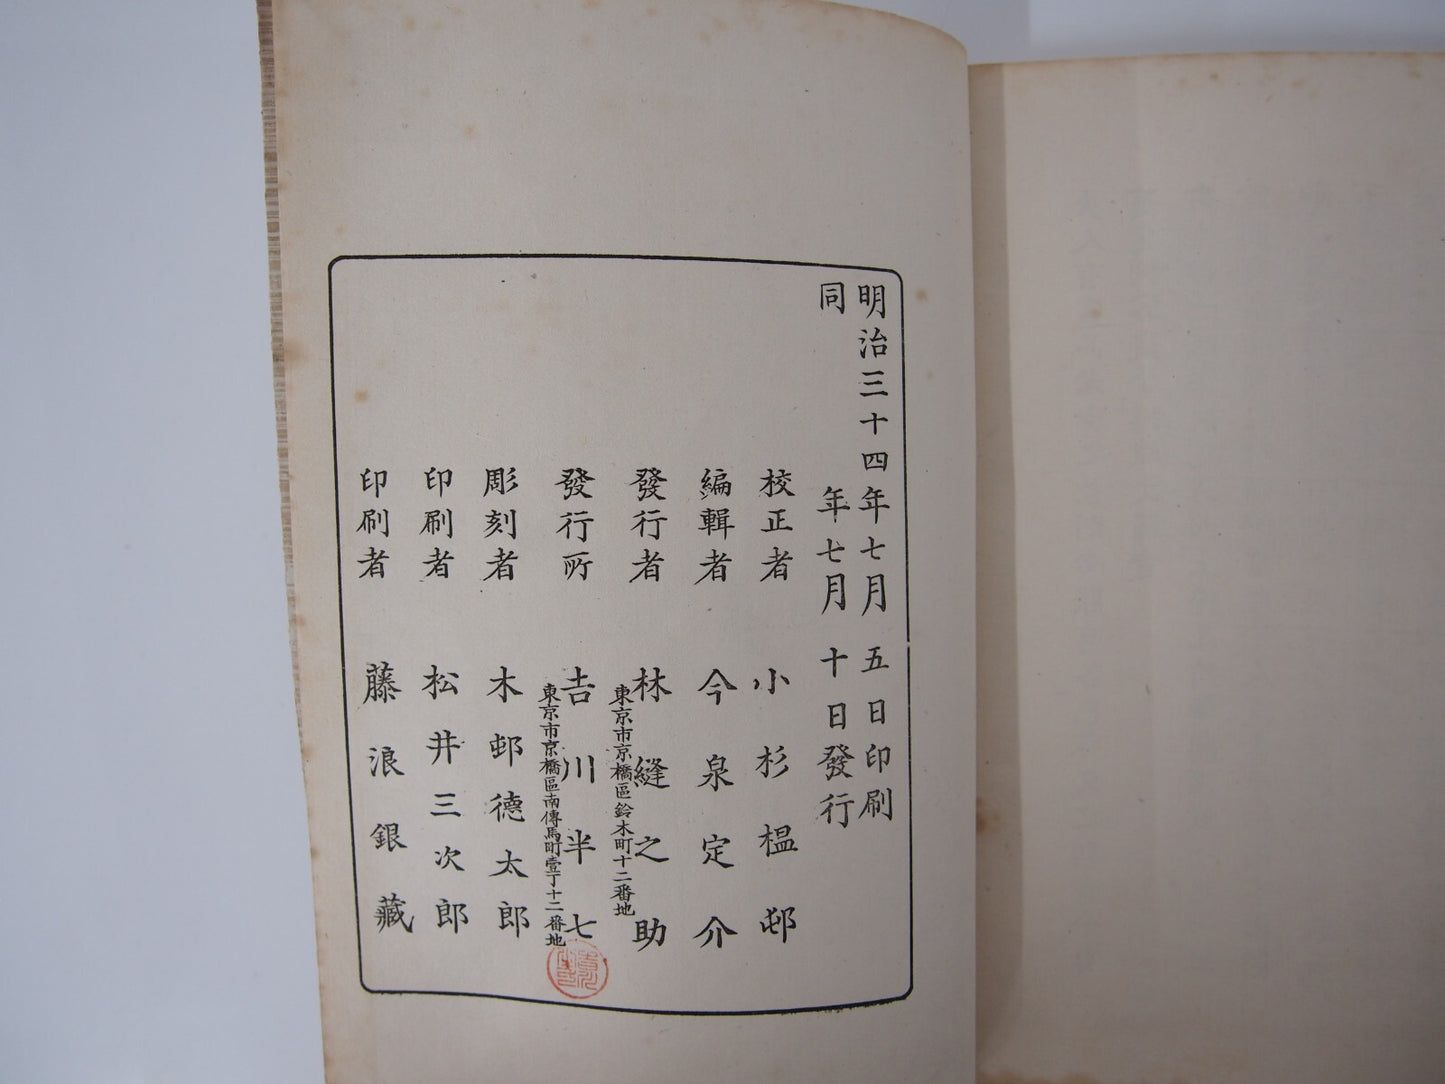 明治三十四年七月五日印刷
同年七月十日發行
校正者 小杉榲邨
編輯者 今泉定介
發行者 林縫之助
東京市京橋區鈴木町十二番地
發行所 吉川半七
東京市京橋區南傳馬町壹丁十二番地
彫刻者 木邨德太郎
印刷者 松井三次郎
印刷者 藤浪銀藏